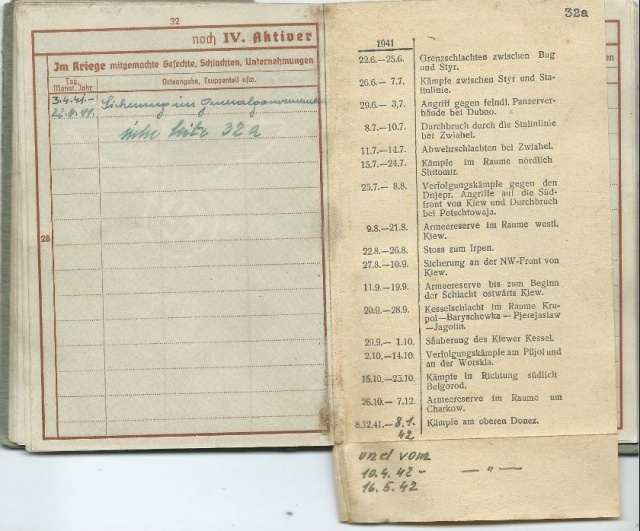 32
noch IV. Aktiver
Im Kriege mitgemachte Gefechte, Schlachten, Unternehmungen
Tag, Monat, Jahr
Ortsangabe, Truppenteil usw.
3.4.41.–
22.6.41.
Sicherung im Generalgouvernement
siehe Seite 32 a
28
32a
1941
22.6.—25.6. Grenzschlachten zwischen Bug
und Styr.
26.6.— 7.7. Kämpfe zwischen Styr und Sta-
linlinie.
29.6.— 3.7. Angriff gegen feindl. Panzerver-
bände bei Dubno.
8.7.—10.7. Durchbruch durch die Stalinlinie
bei Zwiahel.
11.7.—14.7. Abwehrschlachten bei Zwiahel.
15.7.—24.7. Kämpfe im Raume nördlich
Shitomir.
25.7.— 8.8. Verfolgungskämpfe gegen den
Dnjepr, Angriffe auf die Süd-
front von Kiew und Durchbruch
bei Potschtowaja.
9.8.—21.8. Armeereserve im Raume westl.
Kiew.
22.8.—26.8. Stoss zum Irpen.
27.8.—10.9. Sicherung an der NW-Front von
Kiew.
11.9.—19.9. Armeereserve bis zum Beginn
der Schlacht ostwärts Kiew.
20.9.—28.9. Kesselschlacht im Raume Kru-
pol—Baryschewka — Pjerejaslaw
—Jagotin.
29.9.— 1.10. Säuberung des Kiewer Kessel.
2.10.—14.10. Verfolgungskämpfe am Pßjol und
an der Worskla.
15.10.—25.10. Kämpfe in Richtung südlich
Belgorod.
26.10.— 7.12. Armeereserve im Raume um
Charkow.
8.12.41.—8.1. Kämpfe am oberen Donez.
42
und vom
10.4.42 - — " —
16.5.42